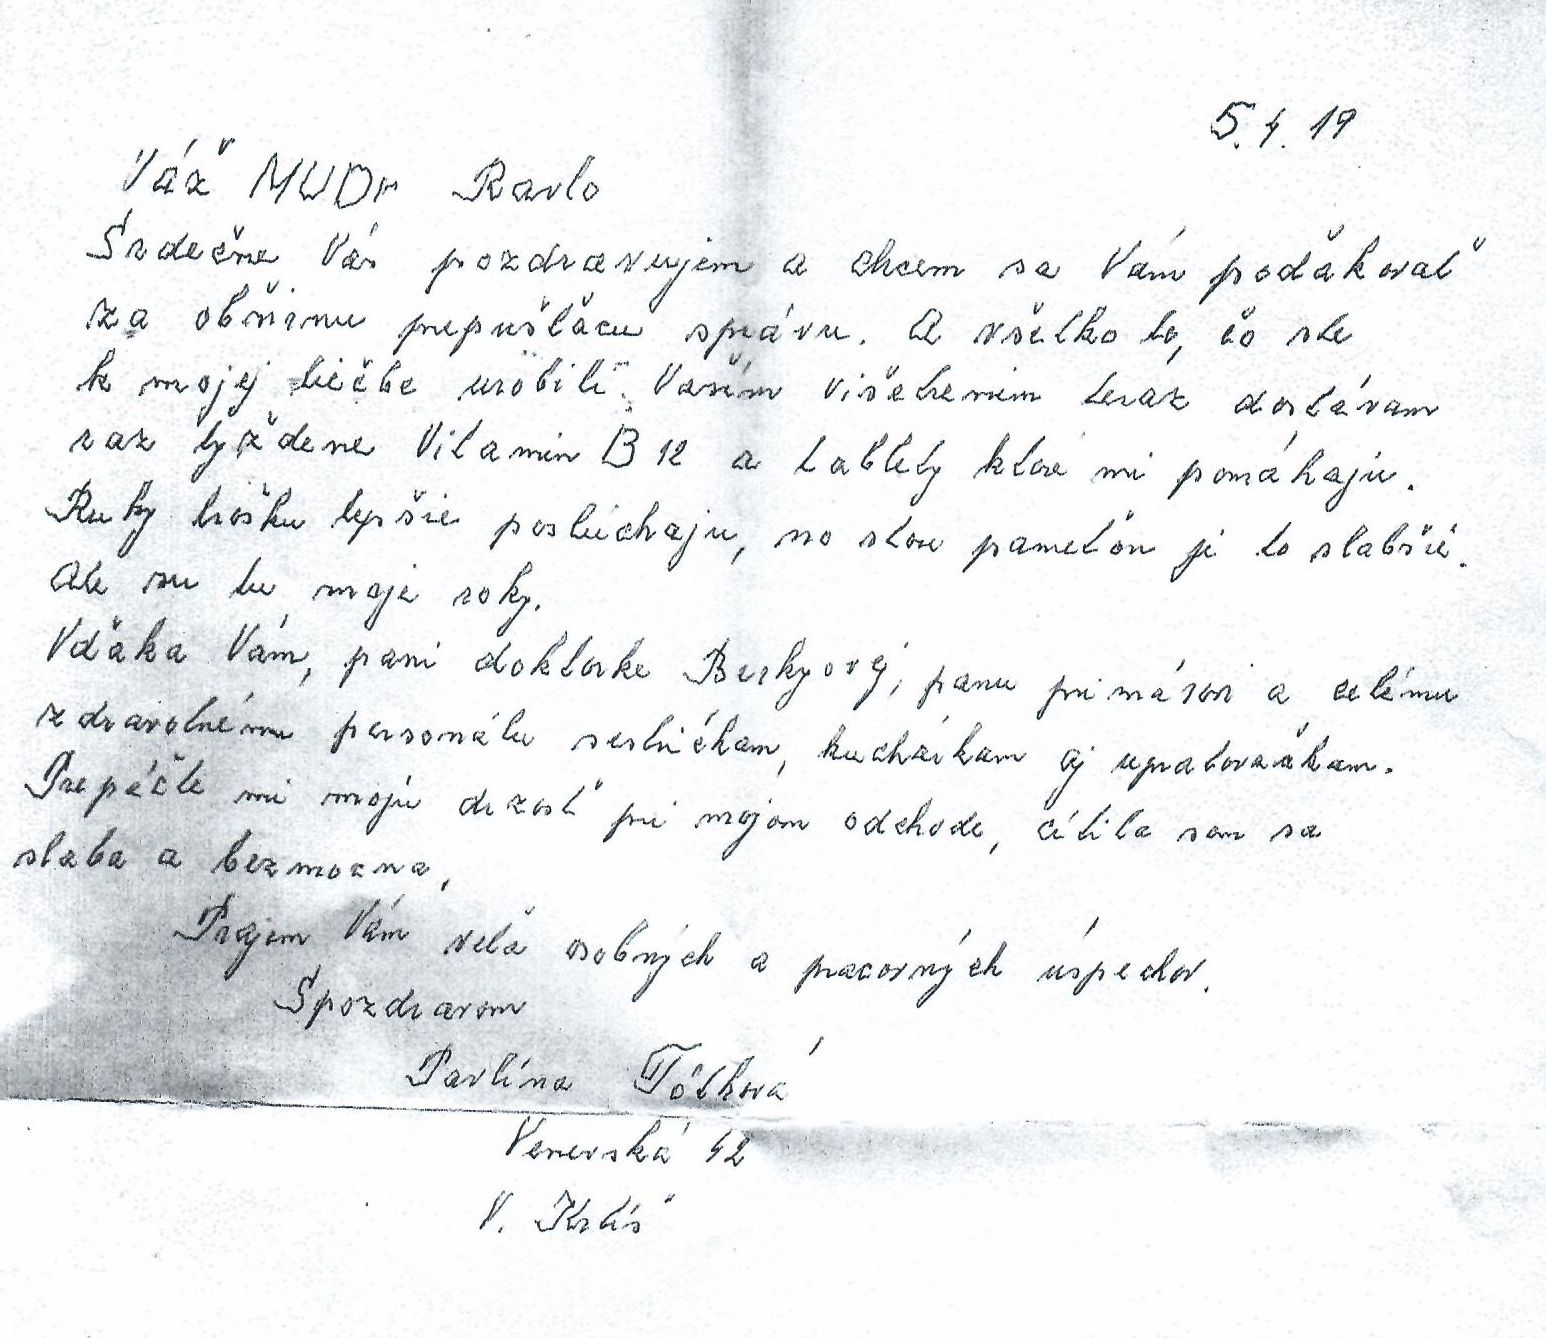 5.4.19
Váž MUDr Pavlo
Srdečne Vás pozdravujem a chcem sa Vám poďakovať
za obširnu prepúšťacu správu. A všetko to, čo ste
k mojej liečbe urobili. Vašim višetrenim teraz dostávam
raz tyždene Vitamin B 12 a tablety ktoré mi pomáhajú.
Ruky trošku lepšie poslúchaju, no stou pameťou je to slabšie.
Ale su tu moje roky.
Vďaka Vám, pani doktorke Berkyovej, panu primárovi a celému
zdravotnému personálu sestričkam, kuchárkam aj upratovačkam.
Prepáčte mi moju drzosť pri mojom odchode, cítila som sa
slaba a bezmocna,
Prajem Vám veľa osobných a pracovných úspechov.
Spozdravom
Pavlína Tóthová
42
V. Krtíš